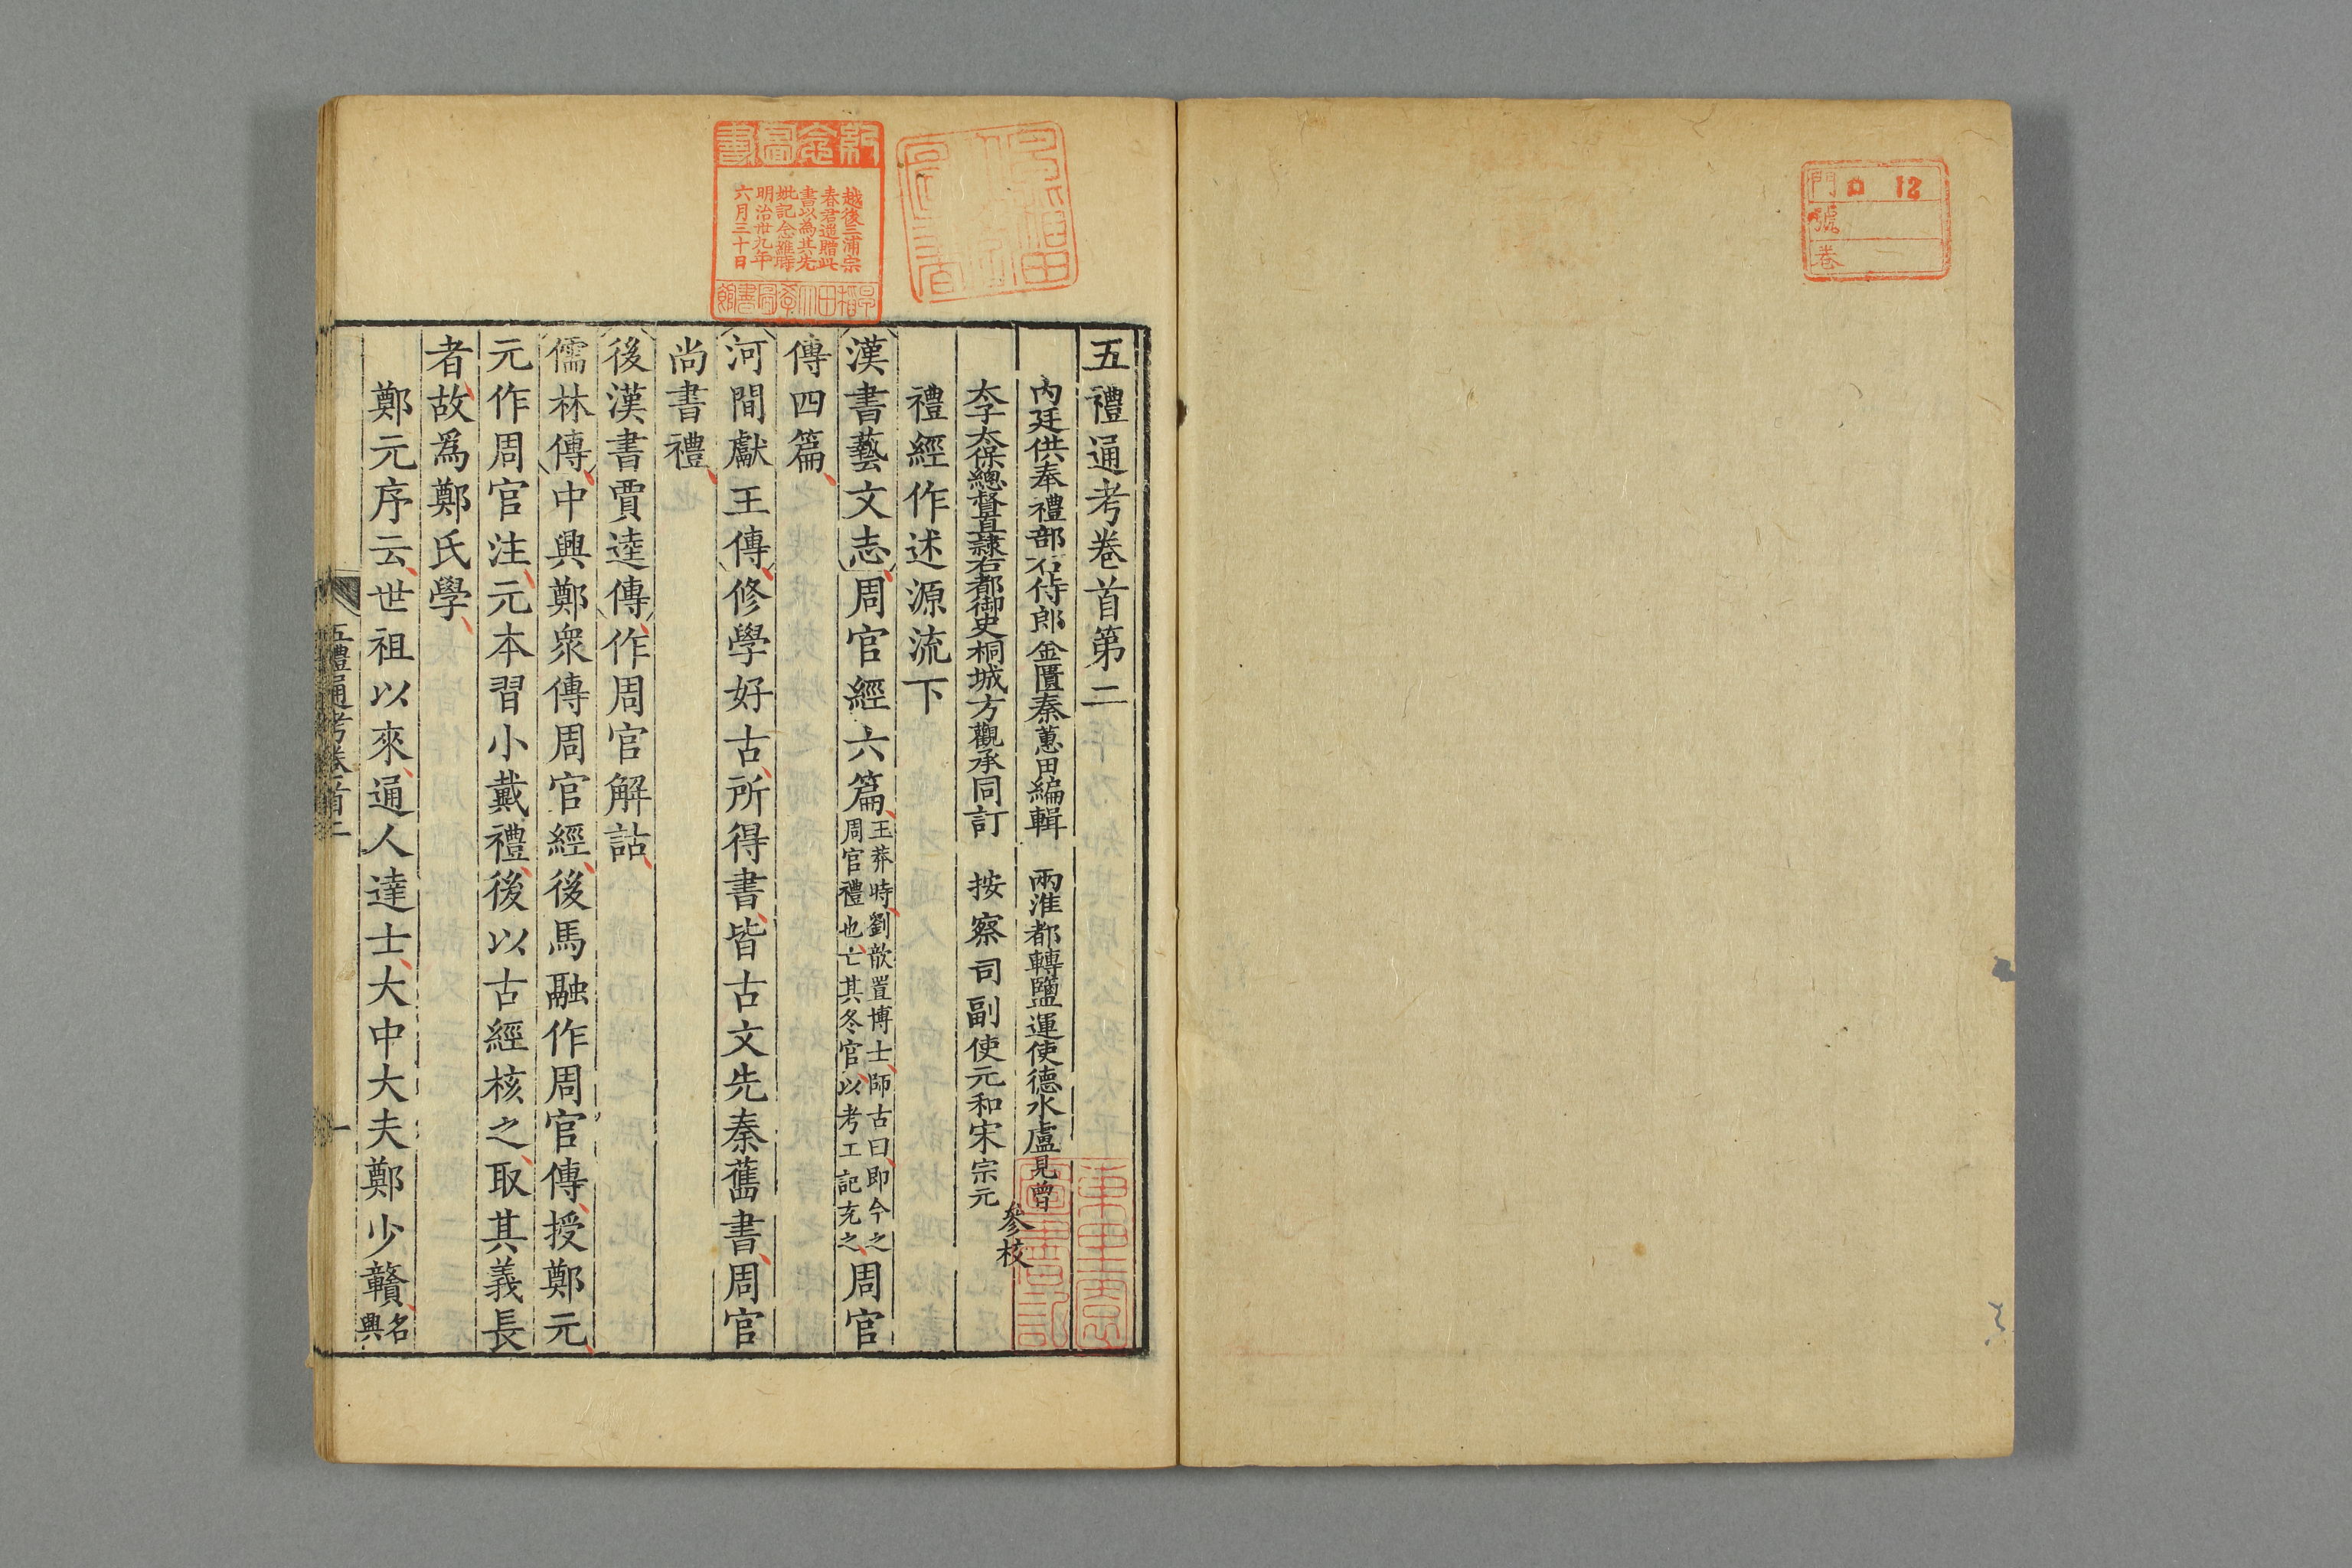 門 ロ 12
號
卷
五禮通考卷首第二
內廷供奉禮部右侍郎金匱秦蕙田編輯 兩淮都轉鹽運使德水盧見曾
太子太保總督直隸右都御史桐城方觀承同訂 按察司副使元和宋宗元
參校
禮經作述源流下
漢書藝文志周官經六篇王莽時劉歆置博士師古曰即今之周官禮也亡其冬官以考工記充之周官
傳四篇
河間獻王傳修學好古所得書皆古文先秦舊書周官
尚書禮
後漢書賈逵傳作周官解詁
儒林傳中興鄭眾傳周官經後馬融作周官傳授鄭元
元作周官注元本習小戴禮後以古經核之取其義長
者故爲鄭氏學
鄭元序云世祖以來通人達士大中大夫鄭少贛名興
五禮通考卷首二
一
紀念圖書
越後三浦宗
春君遥贈此
書以為其先
妣記念雖時
明治卅九年
六月三十日
早稻田大學圖書館